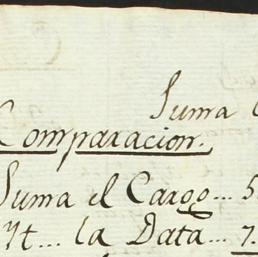 Suma
Comparacion.
Suma el Cargo... 5
Yt... la Data... 7.